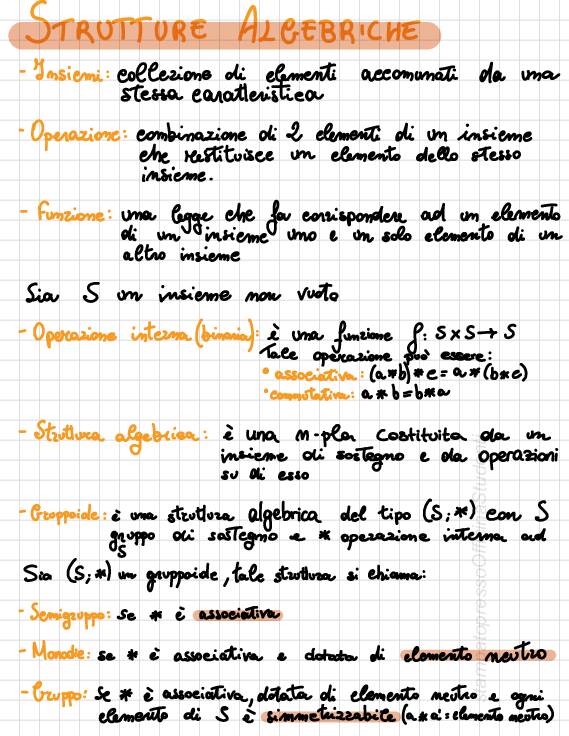 STRUTTURE ALGEBRICHE
- Insiemi: collezione di elementi accomunati da una
stessa caratteristica
- Operazione: combinazione di 2 elementi di un insieme
che restituisce un elemento dello stesso
insieme.
- Funzione: una legge che fa corrispondere ad un elemento
di un insieme uno e un solo elemento di un
altro insieme
Sia S un insieme non vuoto
- Operazione interna (binaria): è una funzione f: S x S → S
Tale operazione può essere:
• associativa: (a*b)*c = a*(b*c)
• commutativa: a*b = b*a
- Struttura algebrica: è una n-pla costituita da un
insieme di sostegno e da operazioni
su di esso
- Gruppoide: è una struttura algebrica del tipo (S;*) con S
gruppo di sostegno e * operazione interna ad
S
Sia (S;*) un gruppoide, tale struttura si chiama:
- Semigruppo: se * è associativa
- Monoide: se * è associativa e dotata di elemento neutro
- Gruppo: se * è associativa, dotata di elemento neutro e ogni
elemento di S è simmetrizzabile (a*a' = elemento neutro)